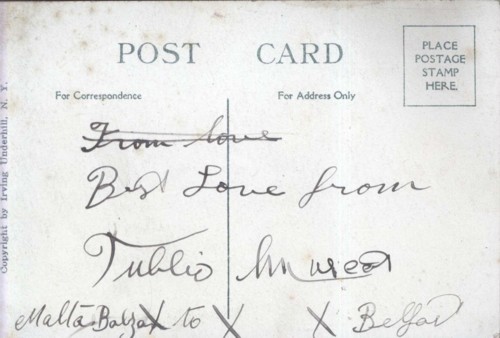 POST CARD
PLACE
POSTAGE
STAMP
HERE.
For Correspondence
For Address Only
Copyright by Irving Underhill, N. Y.
From love
Best Love from
Tublio
Malta to X X